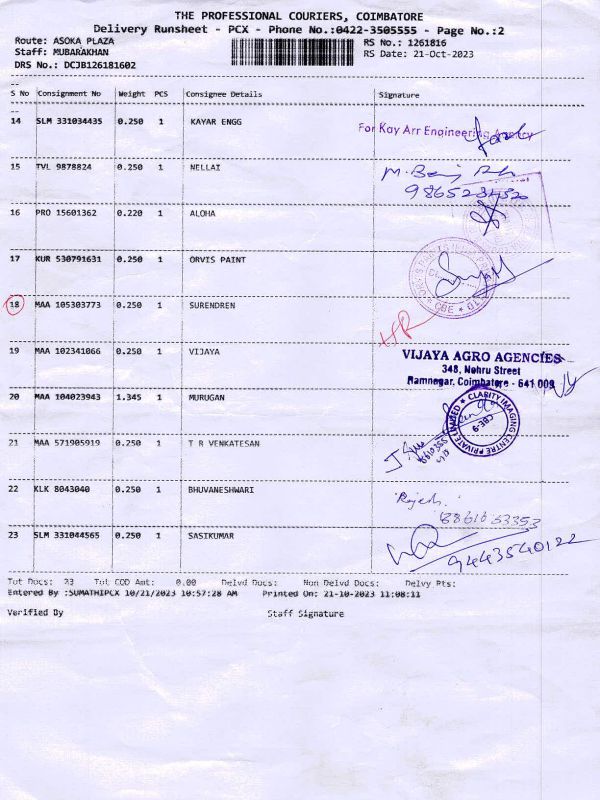 THE PROFESSIONAL COURIERS, COIMBATORE
Delivery Runsheet - PCX - Phone No.:0422-3505555 - Page No.:2
Route: ASOKA PLAZA RS No.: 1261816
Staff: MUBARAKHAN RS Date: 21-Oct-2023
DRS No.: DCJB126181602
S No Consignment No Weight PCS Consignee Details Signature
14 SLM 331034435 0.250 1 KAYAR ENGG
For Kay Arr Engineering Agency
15 TVL 9878824 0.250 1 NELLAI
16 PRO 15601362 0.220 1 ALOHA
17 KUR 530791631 0.250 1 ORVIS PAINT
18 MAA 105303773 0.250 1 SURENDREN
HR
19 MAA 102341066 0.250 1 VIJAYA
VIJAYA AGRO AGENCIES
348, Nehru Street
Ramnagar, Coimbatore - 641 009
20 MAA 104023943 1.345 1 MURUGAN
CLARITY IMAGING CENTRE PRIVATE LIMITED
CBE-9
21 MAA 571905919 0.250 1 T R VENKATESAN
22 KLK 8043040 0.250 1 BHUVANESHWARI
Rajesh.
8861653353
23 SLM 331044565 0.250 1 SASIKUMAR
9443540122
Tot Docs: 23 Tot COD Amt: 0.00 Delvd Docs: Non Delvd Docs: Delvy Pts:
Entered By :SUMATHIPCX 10/21/2023 10:57:28 AM Printed On: 21-10-2023 11:08:11
Verified By Staff Signature